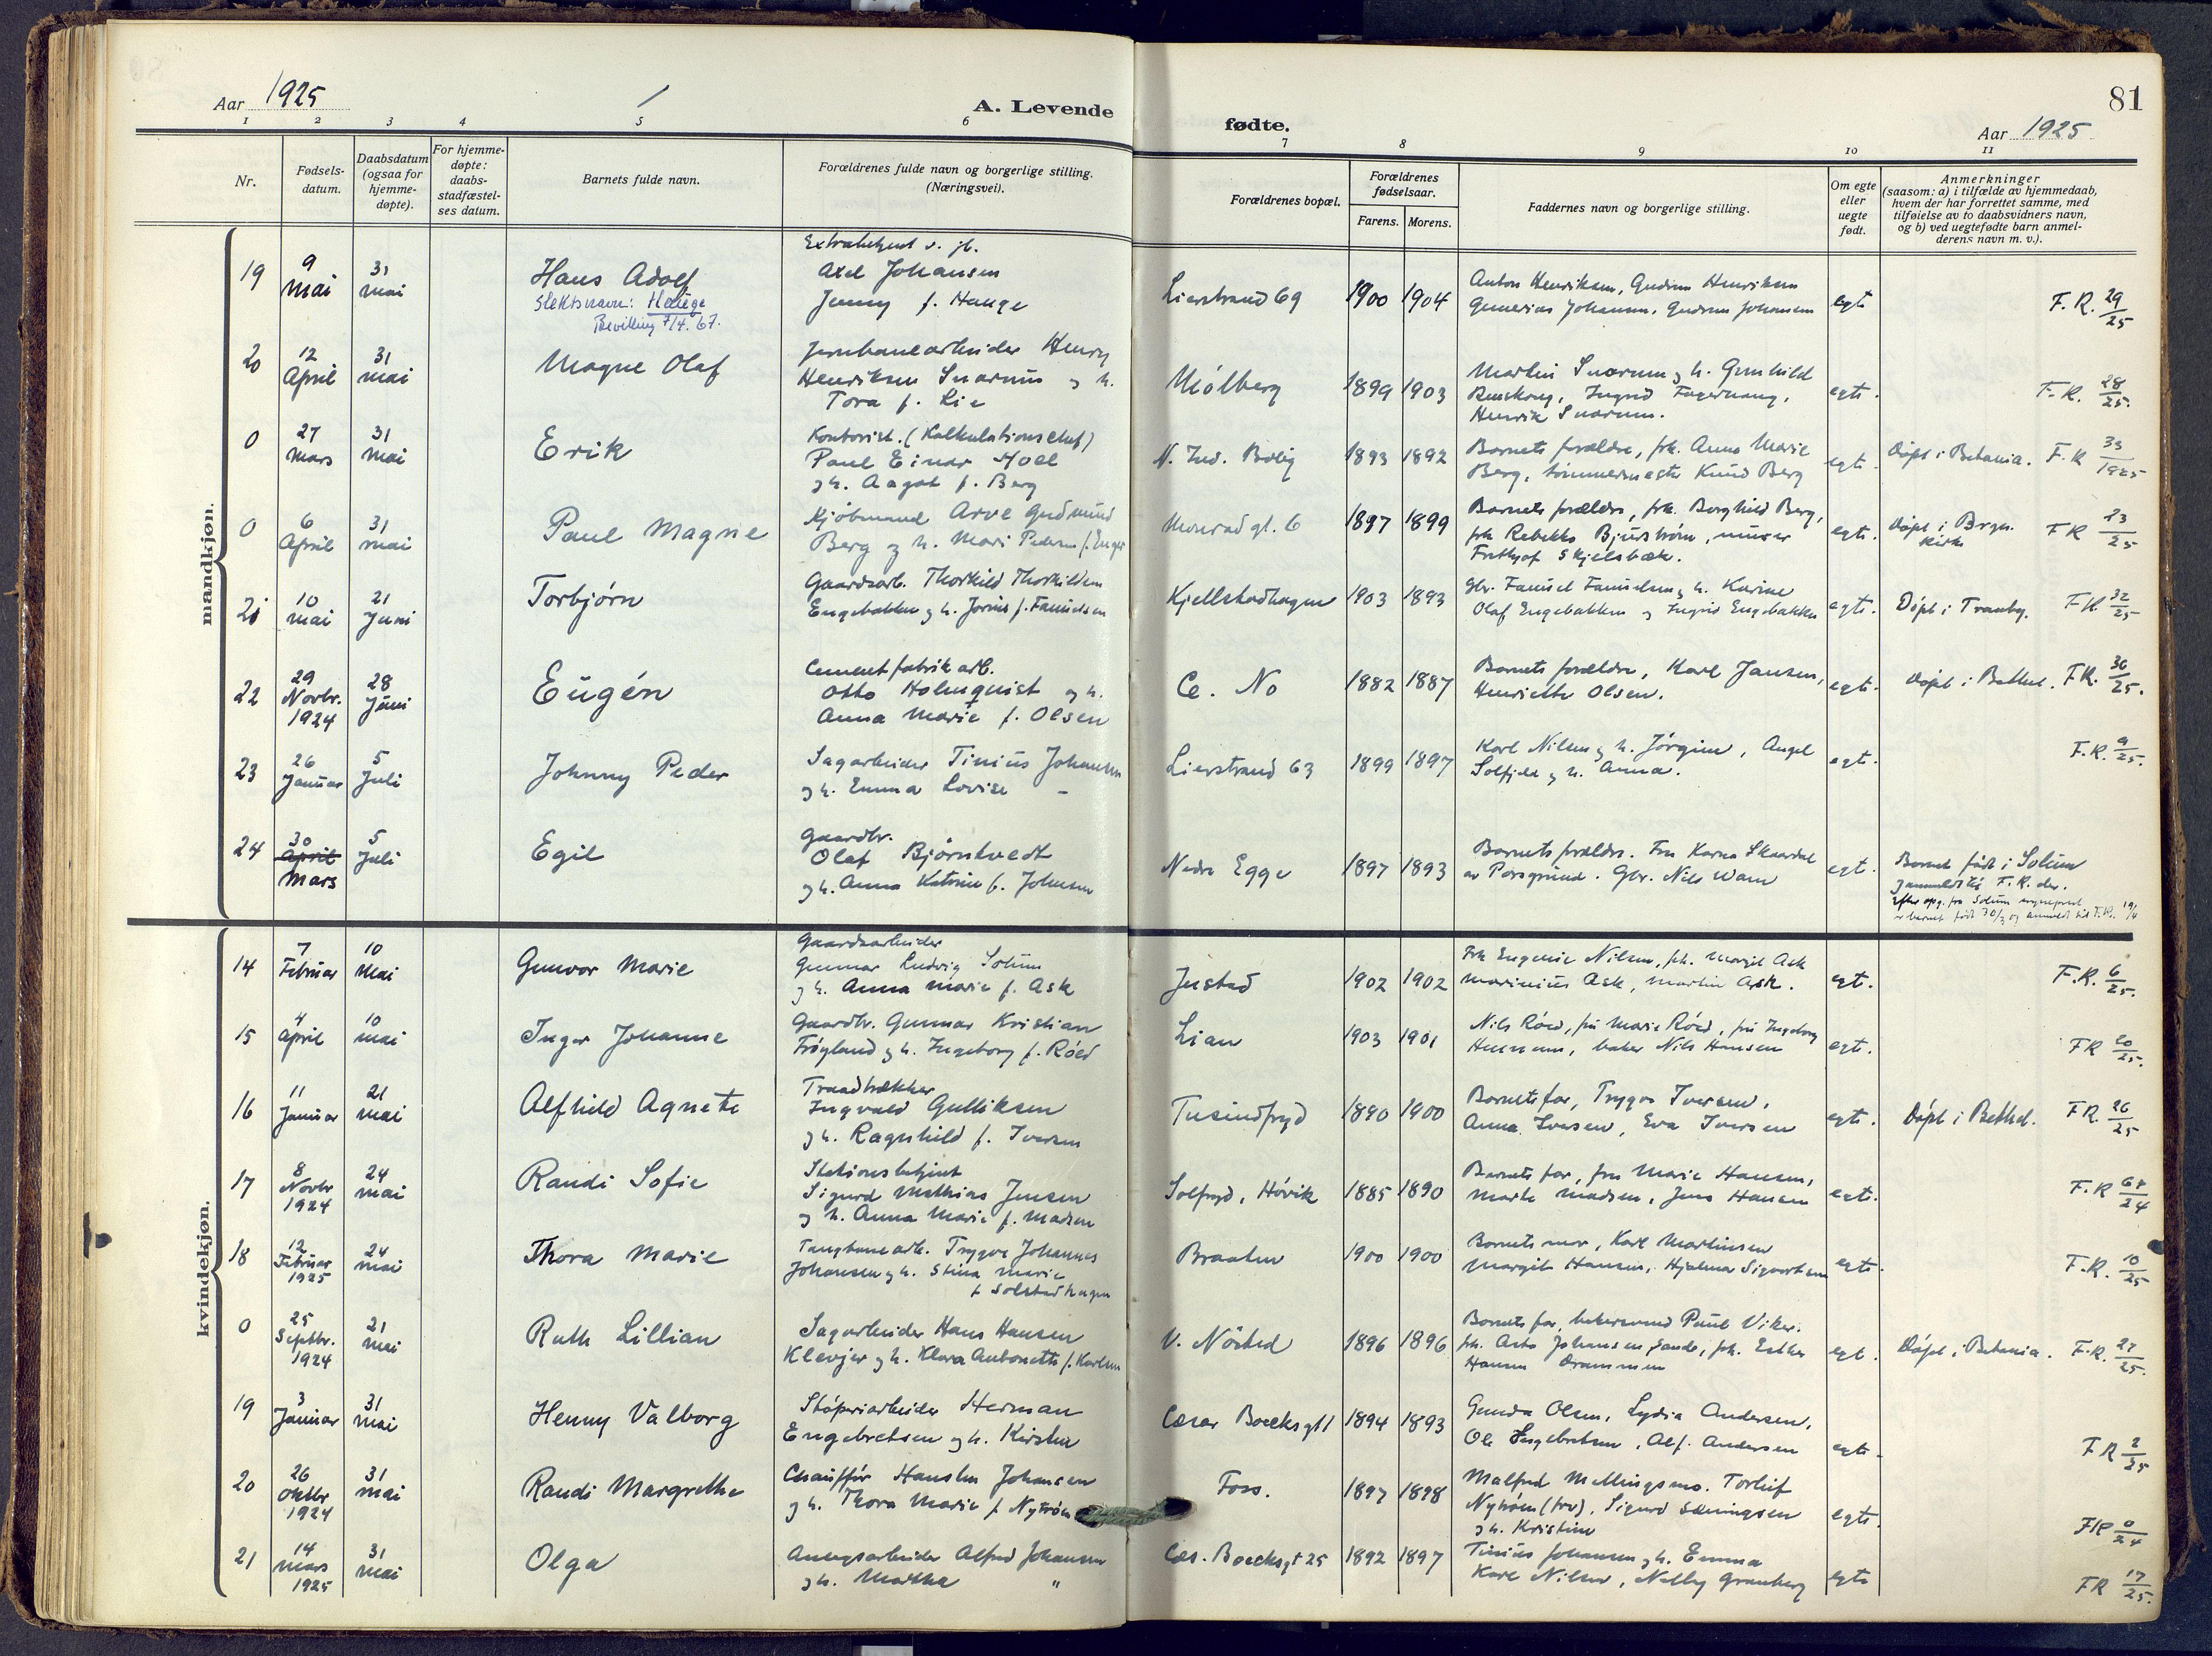 81
Aar 1925
A. Levende
fødte.
Aar 1925
1 2 3 4 5 6 7 8 9 10 11
Nr.
Fødsels-
datum.
Daabsdatum
(ogsaa for
hjemme-
døpte).
For hjemme-
døpte:
daabs-
stadfæstel-
ses datum.
Barnets fulde navn.
Forældrenes fulde navn og borgerlige stilling.
(Næringsvei).
Forældrenes bopæl.
Forældrenes
fødselsaar.
Farens. Morens.
Faddernes navn og borgerlige stilling.
Om egte
eller
uegte
født.
Anmerkninger
(saasom: a) i tilfælde av hjemmedaab,
hvem der har forrettet samme, med
tilføielse av to daabsvidners navn,
og b) ved uegtefødte barn anmel-
derens navn m. v.).
mandkjøn.
19
9
Mai
31
mai
Hans Adolf
Slektsnavn: Hauge
Bevilling 7/4. 67.
Extrabetjent v. jb.
Axel Johansen
Jenny f. Hauge
Lierstrand 69
1900 1904
Anton Henriksen, Gudrun Henriksen
Johansen, Gudrun Johansen
egte
F. R. 29/25
20
12
April
31
mai
Magne Olaf
Jernbanearbeider Henry
Henriksen Snarum og h.
Tora f. Lie
Mølberg
1899 1903
Martin Snarum og h. Gunhild
Ingrid
Henrik Snarum.
egte.
F. R. 28/25.
0
27
Mars
31
mai
Erik
Kontorist. (Kalkulationschef)
Paul Einar Hoel
og h. Aagot f. Berg
N. Ind. Bolig
1893 1892
Barnets forældre, frk. Anna Marie
Berg, tømmermester Knud Berg
egte.
Døpt i Betania. F. R 33/1925
0
6
April
31
mai
Paul Magne
Kjøbmand Arve Gudmund
Berg og h. Mari Pedersen f. Enger
Monrad gt. 6
1897 1899
Barnets forældre, frk. Borghild Berg,
frk Rebekka Bjurstrøm,
Frithjof Skjelsbæk.
egte.
Døpt i Brgn.
kirke
F R 23/25
21
10
mai
21
Juni
Torbjørn
Gaardsarb. Thorkild Thorkildsen
Engebakken og h. f. Samuelsen
Kjellstadhagen
1903 1893
Gbr. og h. Karine
Olaf Engebakken og Ingrid Engebakken
egte.
Døpt i Tranby. F R 32/25
22
29
Novbr.
1924
28
Juni
Eugén
Cementfabrikarb.
Otto Holmquist og h.
Anna Marie f. Olsen
Ce. No
1882 1887
Barnets forældre, Karl Jansen,
Henriette Olsen.
egte.
Døpt i Bethel. F R. 36/25.
23
26
Januar
5
Juli
Johnny Peder
Sagarbeider Tinius Johansen
og h. Emma Lovise -
Lierstrand 63
1899 1897
Karl Nilsen og h. Jørgine, Angel
Solfjeld og h. Anna.
egte.
F. R. 9/25.
24
30
April
Mars
5
Juli
Egil
Gaardbr.
Olaf Bjørntvedt
og h. Anna Katrine f. Johnsen
Nedre Egge
1897 1893
Barnets forældre. Fru Karna Skaardal
av Porsgrund. Gbr. Nils Wam
egte.
Barnet født i Solum
anmeldt til F. R. der.
Efter opg. fra Solum sogneprest
er barnet født 30/3 og anmeldt til F. R. 19/4
kvindekjøn.
14
7
Februar
10
Mai
Gunvor Marie
Gaardsarbeider
Gunnar Ludvig Solum
og h. Anna Marie f. Ask
Justad
1902 1902
Frk Eugenie Nilsen, frk. Margit Ask
Marinius Ask, Martin Ask.
egt.
F. R. 6/25.
15
4
April
10
mai
Inger Johanne
Gaardbr. Gunnar Kristian
Frøyland og h. Ingeborg f. Røed
Lian
1903 1901
Nils Røed, fru Marie Røed, fru Ingeborg
baker Nils Hansen
egte.
F R 20/25.
16
11
Januar
21
mai
Alfhild Agnete
Traadtrækker
Ingvald Gulliksen
og h. Ragnhild f. Iversen
Tusindfryd
1890 1900
Barnets far, Trygve Iversen,
Anna Iversen, Eva Iversen
egte.
Døpt i Bethel. F R. 26/25
17
8
Novbr
1924
24
mai
Randi Sofie
Stationsbetjent
Sigurd Mathias Jensen
og h. Anna Marie f. Madsen
Solfryd, Høvik
1885 1890
Barnets far, fru Marie Hansen,
Marta Madsen, Jens Hansen
egte.
F. R 64/24
18
12
Februar
1925
24
mai
Thora Marie
Trygve Johannes
Johansen og h. Stina Marie
f Solstadhagen
Braaten
1900 1900
Barnets mor, Karl Martinsen
Margit Hansen, Hjalmar Sigvartsen
egte.
F. R. 10/25
0
25
Septbr.
1924
21
mai
Ruth Lillian
Sagarbeider Hans Hansen
Klevjer og h. Klara Antonette f. Karlsen
V. Nøsted
1896 1896
Barnets far, bakersvend Paul Viker.
frk. Asta Johansen, Sande, frk. Esther
Hansen Drammen
egt.
Døpt i Betania. F. R. 27/25.
19
3
Januar
31
mai
Henny Valborg
Støperiarbeider Herman
Engebretsen og h. Kirsten
Cæsar Boecksgt 1
1894 1893
Gunda Olsen, Lydia Andersen,
Ole Engebretsen, Alf. Andersen
egte.
F R 2/25
20
26
Oktbr
1924
31
mai
Randi Margrethe
Chauffør Hansken Johansen
og h. Thora Marie f. Nytrøen
Foss.
1897 1898
Malfred Mellingsmo. Torleif
Nytrøen (frv), Sigurd Sæmingsen
og h. Kristine
egte.
F R 0/24
21
14
mars
1925
31
mai
Olga
Anlegsarbeider Alfred Johansen
og h. Martha "
Cæs. Boecksgt 25
1892 1897
Tinius Johansen og h. Emma
Karl Nilsen, Nelly Granberg
egte
F R 17/25.